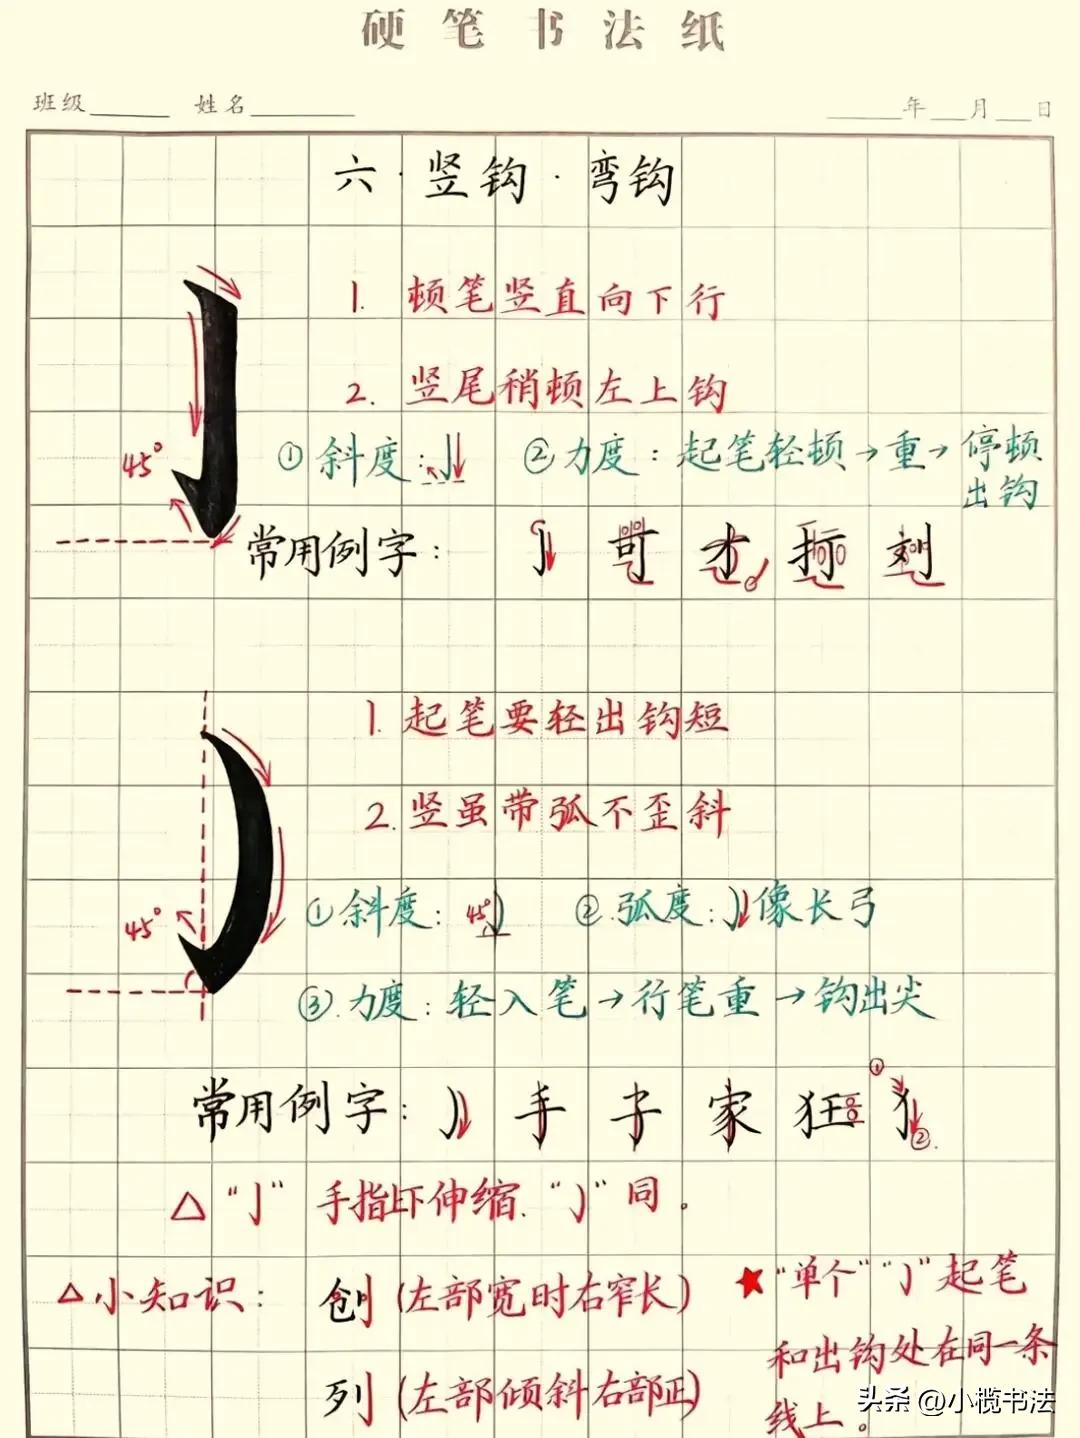 硬笔书法纸
班级______ 姓名______ ____年__月__日
六·竖钩·弯钩
1. 顿笔竖直向下行
2. 竖尾稍顿左上钩
45°
①斜度:亅 ②力度:起笔轻顿→重→停顿出钩
常用例字: 亅 可 才 打 刘
1. 起笔要轻出钩短
2. 竖虽带弧不歪斜
45°
①斜度:45° ②.弧度:像长弓
③.力度:轻入笔→行笔重→钩出尖
常用例字: 手 子 家 狂 犭
① ②
△“亅”手指上下伸缩.“”同。
△小知识: 创(左部宽时右窄长)
列(左部倾斜右部正)
★“单个”“”起笔
和出钩处在同一条
线上。
头条 @小榄书法